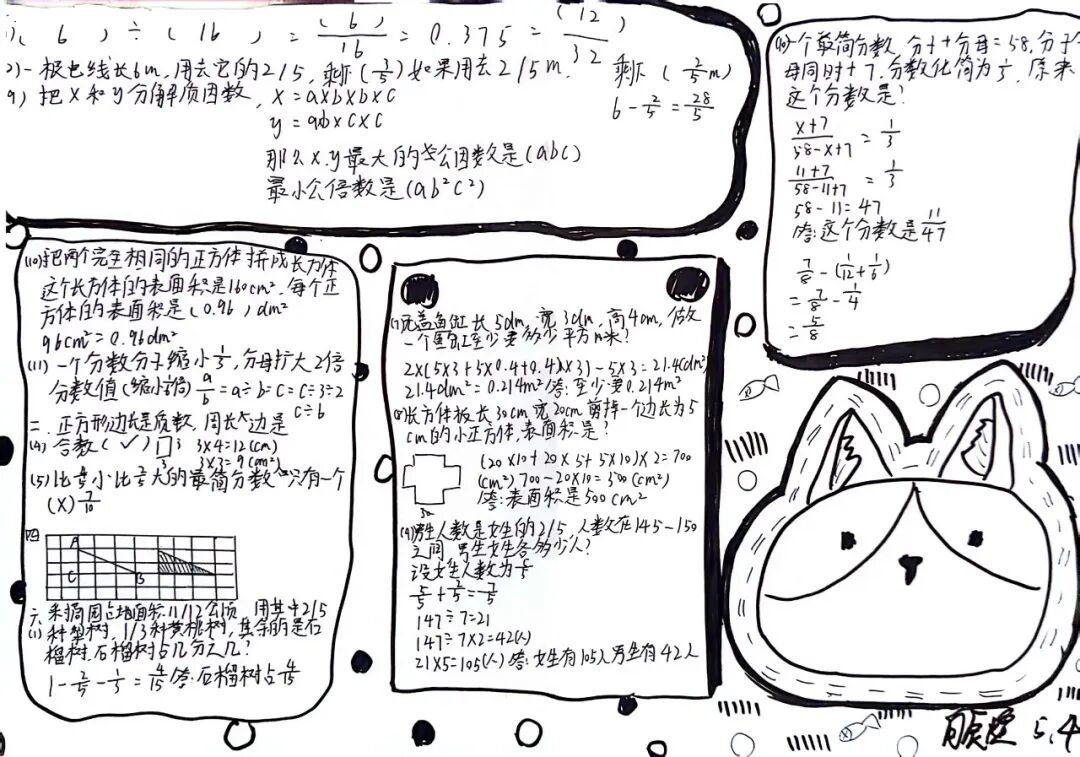 1) ( 6 ) ÷ ( 16 ) = (6)/16 = 0.375 = (12)/32
2) 一根电线长6m,用去它的2/5,剩下(3/5)如果用去2/5m,剩下(2/5m)
6-2/5=28/5
9) 把x和y分解质因数,x=a×b×b×c
y=ab×c×c
那么x.y最大的公因数是(abc)
最小公倍数是(ab²c²)
(10)把两个完全相同的正方体拼成长方体
这个长方体的表面积是160cm²,每个正
方体的表面积是(0.96)dm²
96cm²=0.96dm²
(11)一个分数分子缩小1/3,分母扩大2倍
分数值(缩小6倍)a/b=a÷b=c=c÷3÷2
c÷6
二、正方形边长是质数,周长是
(4)合数(✓) 3 3×4=12(cm)
3 3×3=9(cm²)
(5)比小比大的最简分数只有一个
(×)7/10
四
A
C B
六 果园占地面积11/12公顷,用其中2/5
(1)种梨树,1/3种黄桃树,其余的是石
榴树.石榴树占几分之几?
1-2/5-1/3=4/15答:石榴树占4/15
(7)无盖鱼缸长5dm,宽3dm,高4cm,做
一个鱼缸至少要多少平方m米?
2×(5×3+5×0.4+0.4×3)-5×3=21.4(dm²)
21.4dm²=0.214m²答:至少要0.214m²
(8)长方体板长30cm,宽20cm剪掉一个边长为5
cm的小正方体,表面积是?
(20×10+20×5+5×10)×2=700
(cm²)700-20×10=500(cm²)
答:表面积是500cm²
30
(9)男生人数是女生的2/5,人数在145-150
之间,男生女生各多少人?
设女生人数为5/5
5/5+2/5=7/5
147÷7=21
147÷7×2=42(人)
21×5=105(人)答:女生有105人男生有42人
一个最简分数,分子+分母=58,分子分
母同时+7,分数化简为1/3,原来
这个分数是?
x+7/58-x+7=1/3
11+7/58-11+7=1/3
58-11=47
答:这个分数是11/47
7/8-(1/12+1/6)
=7/8-1/4
=5/8
5.4